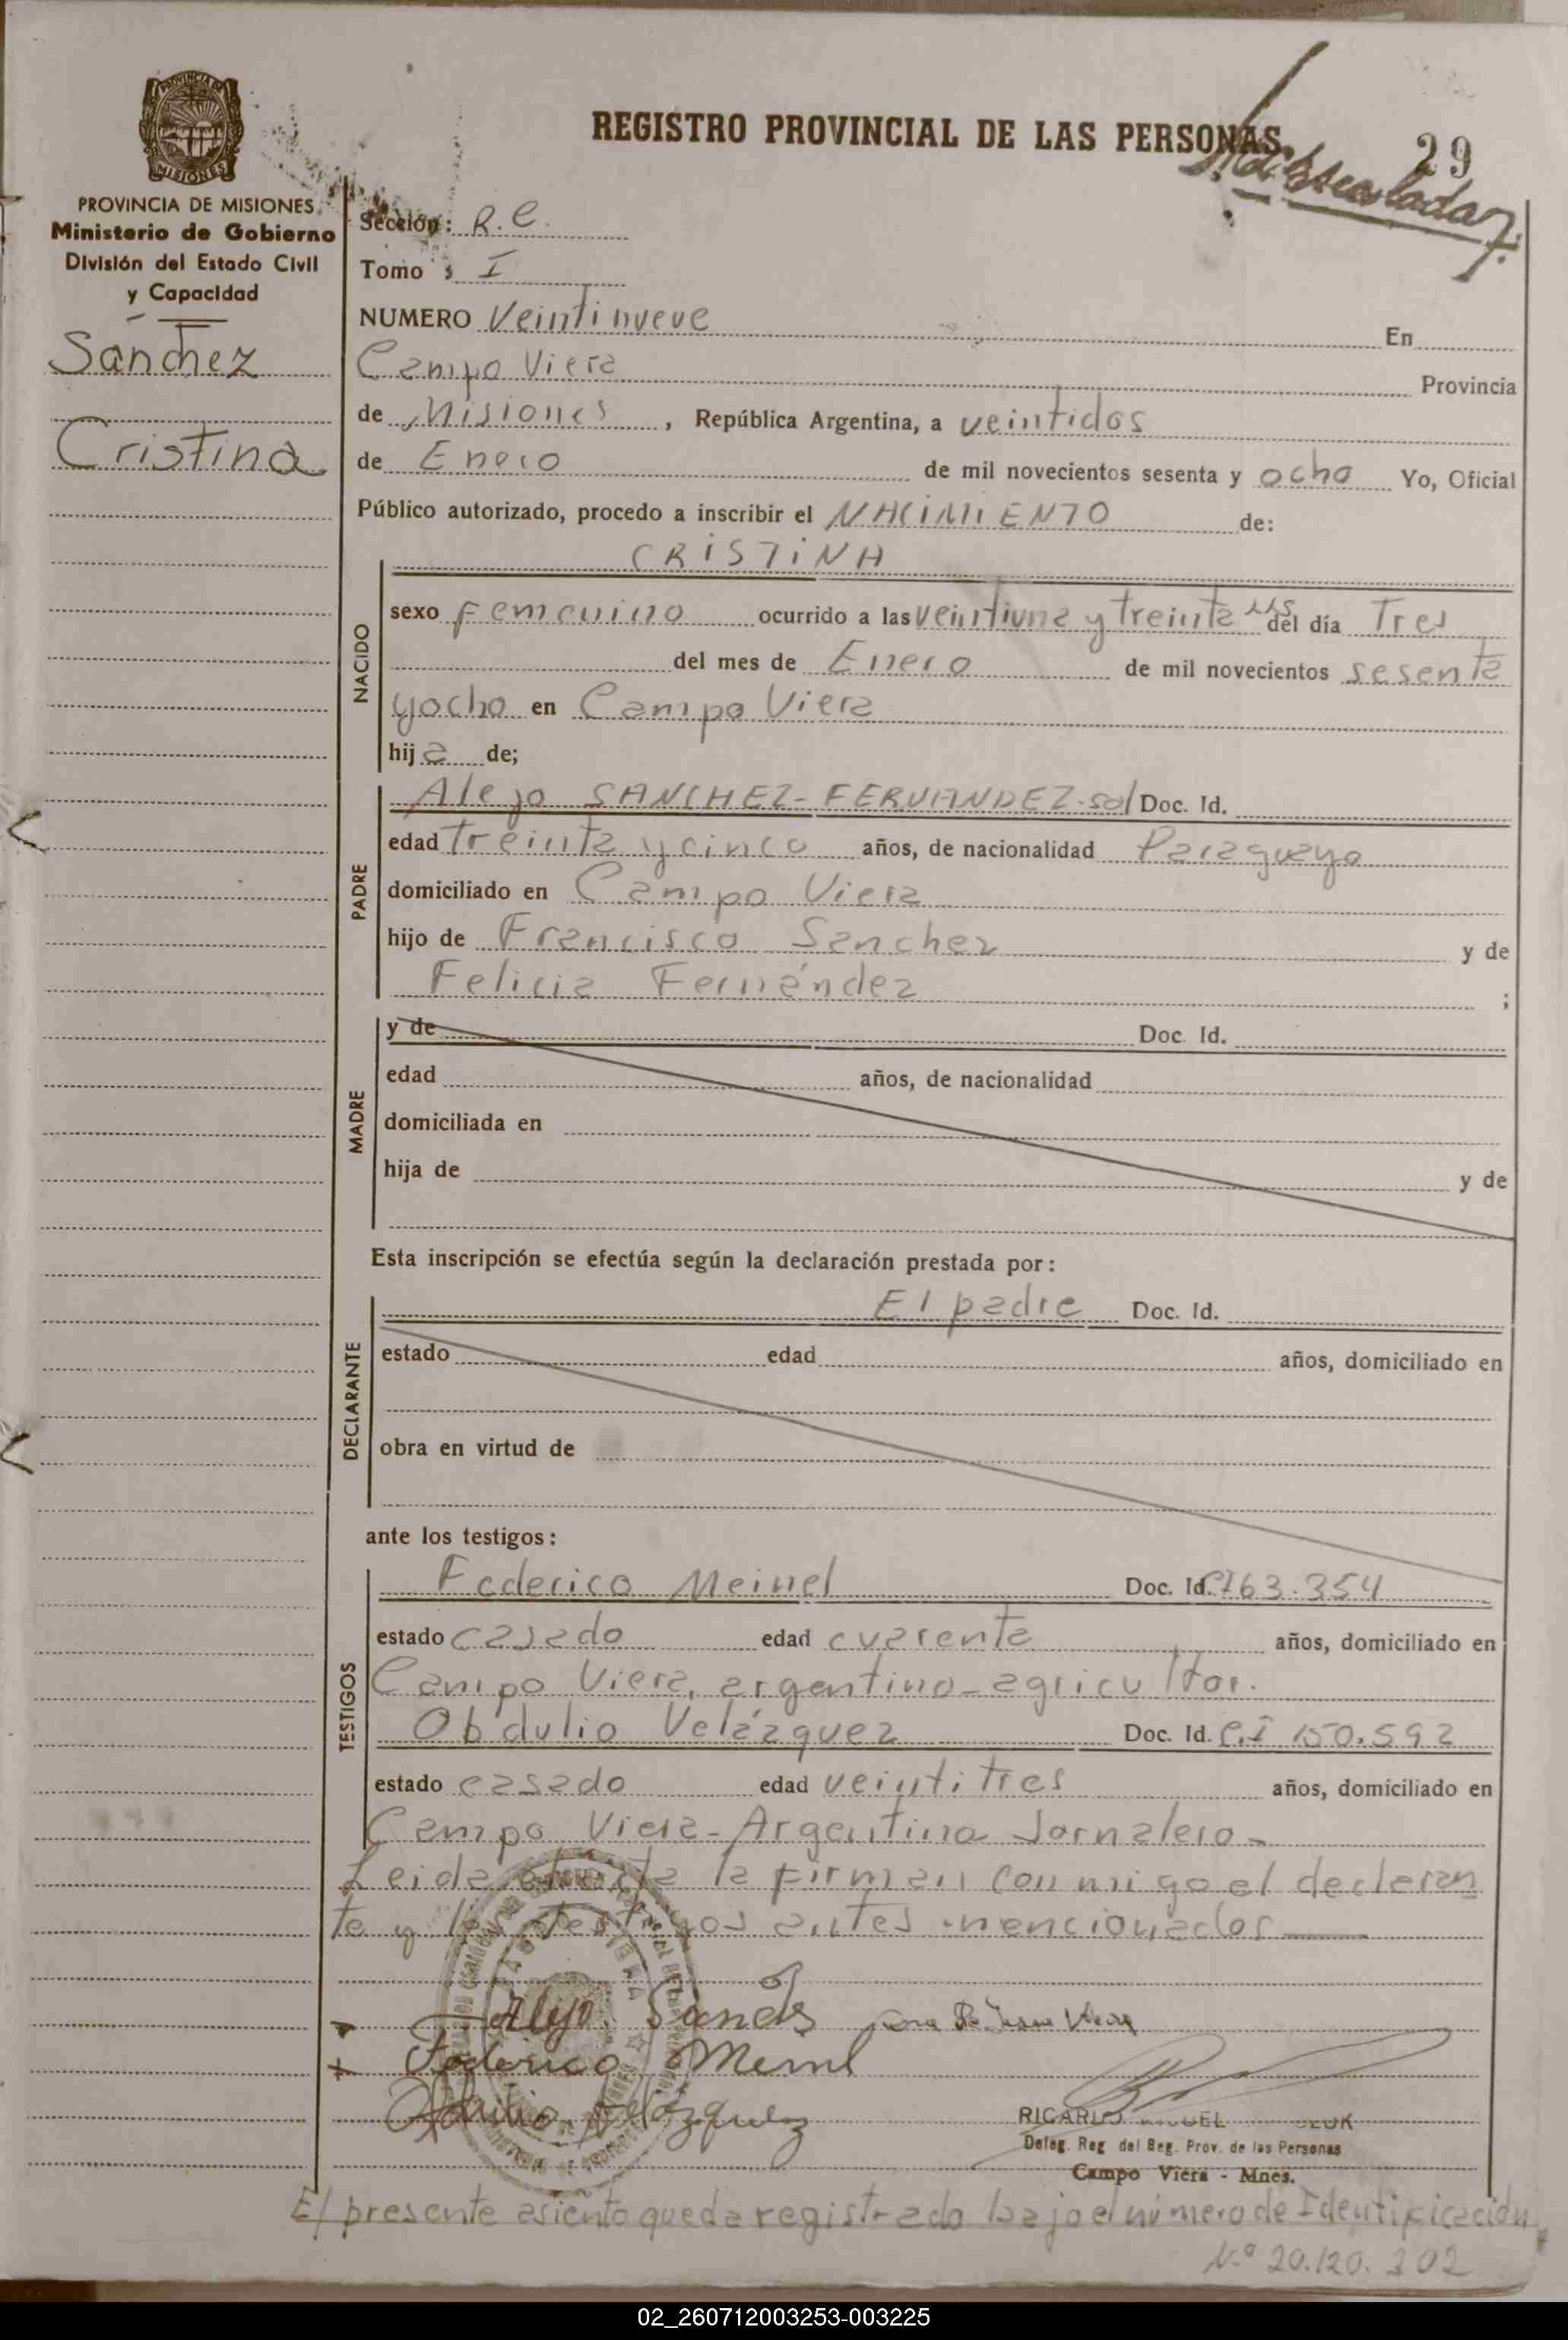 REGISTRO PROVINCIAL DE LAS PERSONAS
29
PROVINCIA DE MISIONES
PROVINCIA DE MISIONES
Ministerio de Gobierno
División del Estado Civil
y Capacidad
Sánchez
Cristina
Sección: R.C.
Tomo : I
NUMERO Veintinueve En
Campo Viera Provincia
de Misiones, República Argentina, a veintidos
de Enero de mil novecientos sesenta y ocho Yo, Oficial
Público autorizado, procedo a inscribir el NACIMIENTO de:
CRISTINA
NACIDO
sexo femenino ocurrido a las veintiuna y treinta hs del día Tres
del mes de Enero de mil novecientos sesenta
y ocho en Campo Viera
hija de;
PADRE
Alejo SANCHEZ-FERNANDEZ-sol Doc. Id.
edad treinta y cinco años, de nacionalidad Paraguayo
domiciliado en Campo Viera
hijo de Francisco Sanchez y de
Felicia Fernández ;
MADRE
y de Doc. Id.
edad años, de nacionalidad
domiciliada en
hija de y de
Esta inscripción se efectúa según la declaración prestada por:
DECLARANTE
El padre Doc. Id.
estado edad años, domiciliado en
obra en virtud de
ante los testigos:
TESTIGOS
Federico Meinel Doc. Id. 763.354
estado casado edad cuarenta años, domiciliado en
Campo Viera, argentino-agricultor.
Obdulio Velázquez Doc. Id. C.I 150.592
estado casado edad veintitres años, domiciliado en
Campo Viera-Argentina Jornalero-
Leida el acta la firman conmigo el declaran
te y los testigos antes mencionados
Alejo Sanches
Federico Meinl
Obdulio Velázquez
RICARDO MIGUEL
Deleg. Reg. del Reg. Prov. de las Personas
Campo Viera - Mnes.
El presente asiento queda registrado bajo el número de Identificación
N.º 20.120.302
02_260712003253-003225